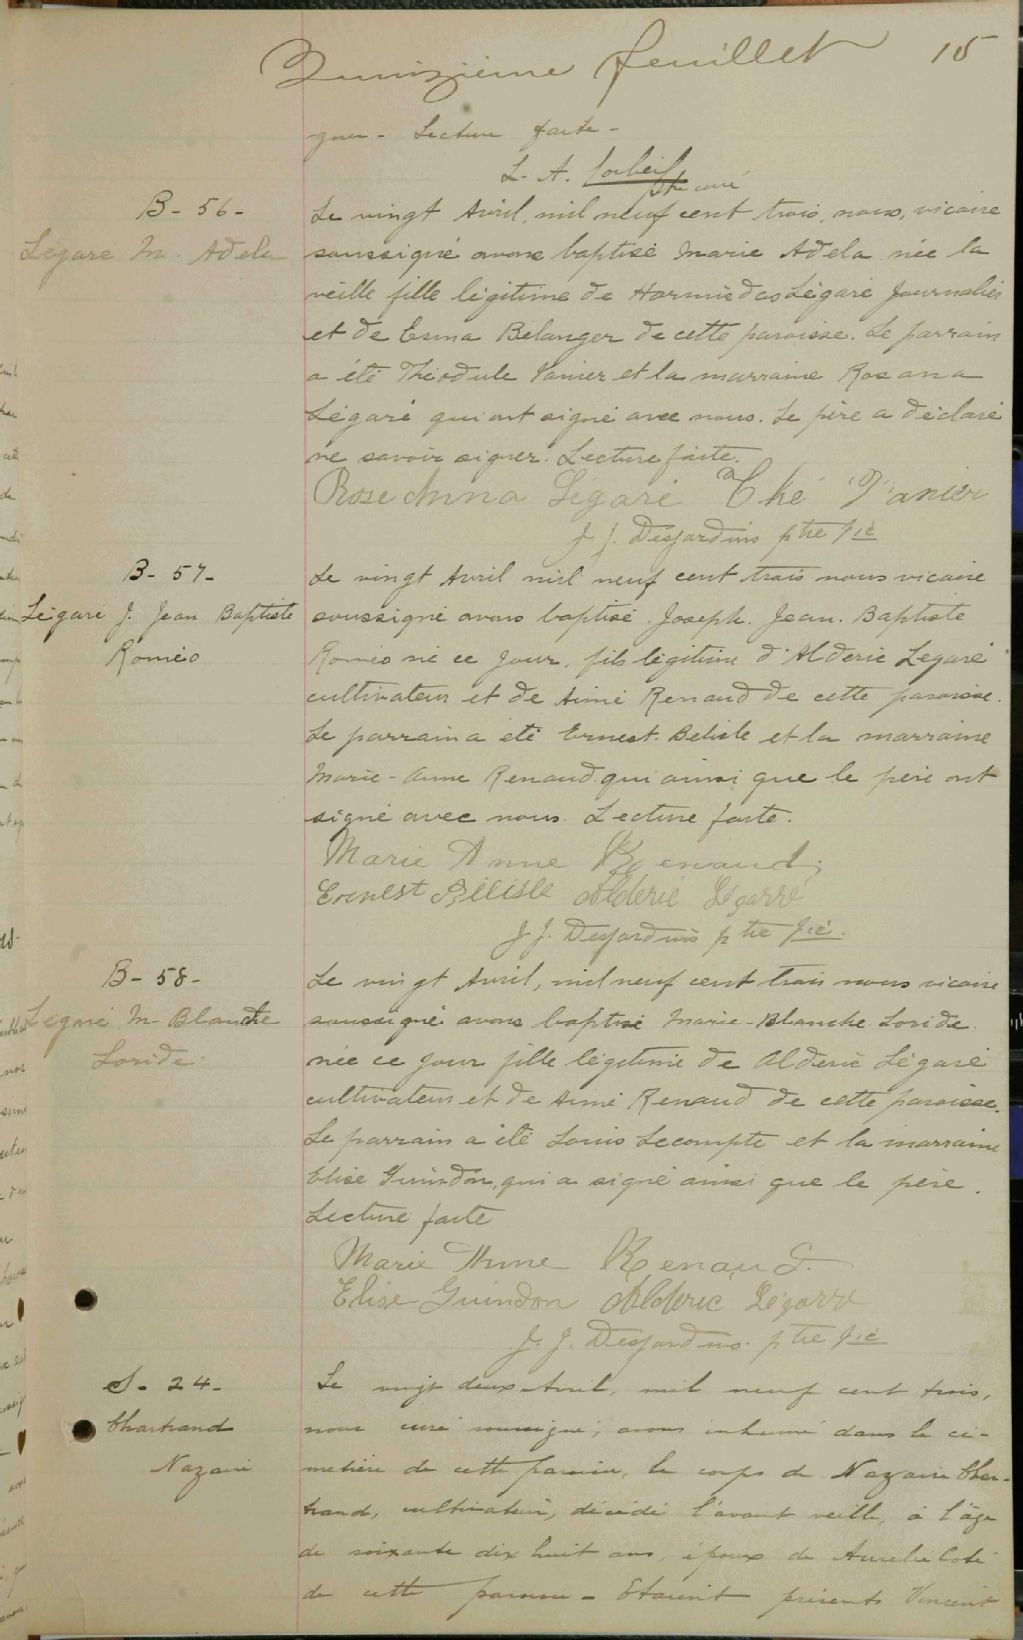 Quinzième feuillet 15
gner - Lecture faite -
L. A. Corbeil
ptre curé
B - 56 -
Légaré M. Adela
Le vingt Avril, mil neuf cent trois, nous, vicaire
soussigné avons baptisé Marie Adela née la
veille fille légitime de Hormisdas Légaré journalier
et de Esma Bélanger de cette paroisse. Le parrain
a été Théodule Vanier et la marraine Rosanna
Légaré qui ont signé avec nous. Le père a déclaré
ne savoir signer. Lecture faite.
Rose Anna Légaré Thé Vanier
J. J. Desjardins ptre vic
B - 57 -
Légaré J. Jean Baptiste
Roméo
Le vingt Avril mil neuf cent trois nous vicaire
soussigné avons baptisé Joseph. Jean. Baptiste
Roméo né ce jour, fils légitime d'Aldéric Légaré
cultivateur et de Aimé Renaud de cette paroisse.
Le parrain a été Ernest Belisle et la marraine
Marie-Anne Renaud qui ainsi que le père ont
signé avec nous. Lecture faite.
Marie Anne Renaud
Ernest Bélisle Aldéric Légarré
J. J. Desjardins ptre vic.
B - 58 -
Légaré M Blanche
Loride
Le vingt Avril, mil neuf cent trois nous vicaire
soussigné avons baptisé Marie-Blanche Loride
née ce jour fille légitime de Aldéric Légaré
cultivateur et de Aimé Renaud de cette paroisse.
Le parrain a été Louis Lecompte et la marraine
Elise Guindon, qui a signé ainsi que le père.
Lecture faite
Marie Anne Renaud.
Elise Guindon Alderic Légarré
J. J. Desjardins ptre vic
S - 24 -
Chartrand
Nazaire
Le vingt deux Avril, mil neuf cent trois,
nous curé soussigné, avons inhumé dans le ci-
metière de cette paroisse, le corps de Nazaire Char-
trand, cultivateur, décédé l'avant veille, à l'âge
de soixante dix huit ans, époux de Aurélie Coté
de cette paroisse - Etaient présents Vincent